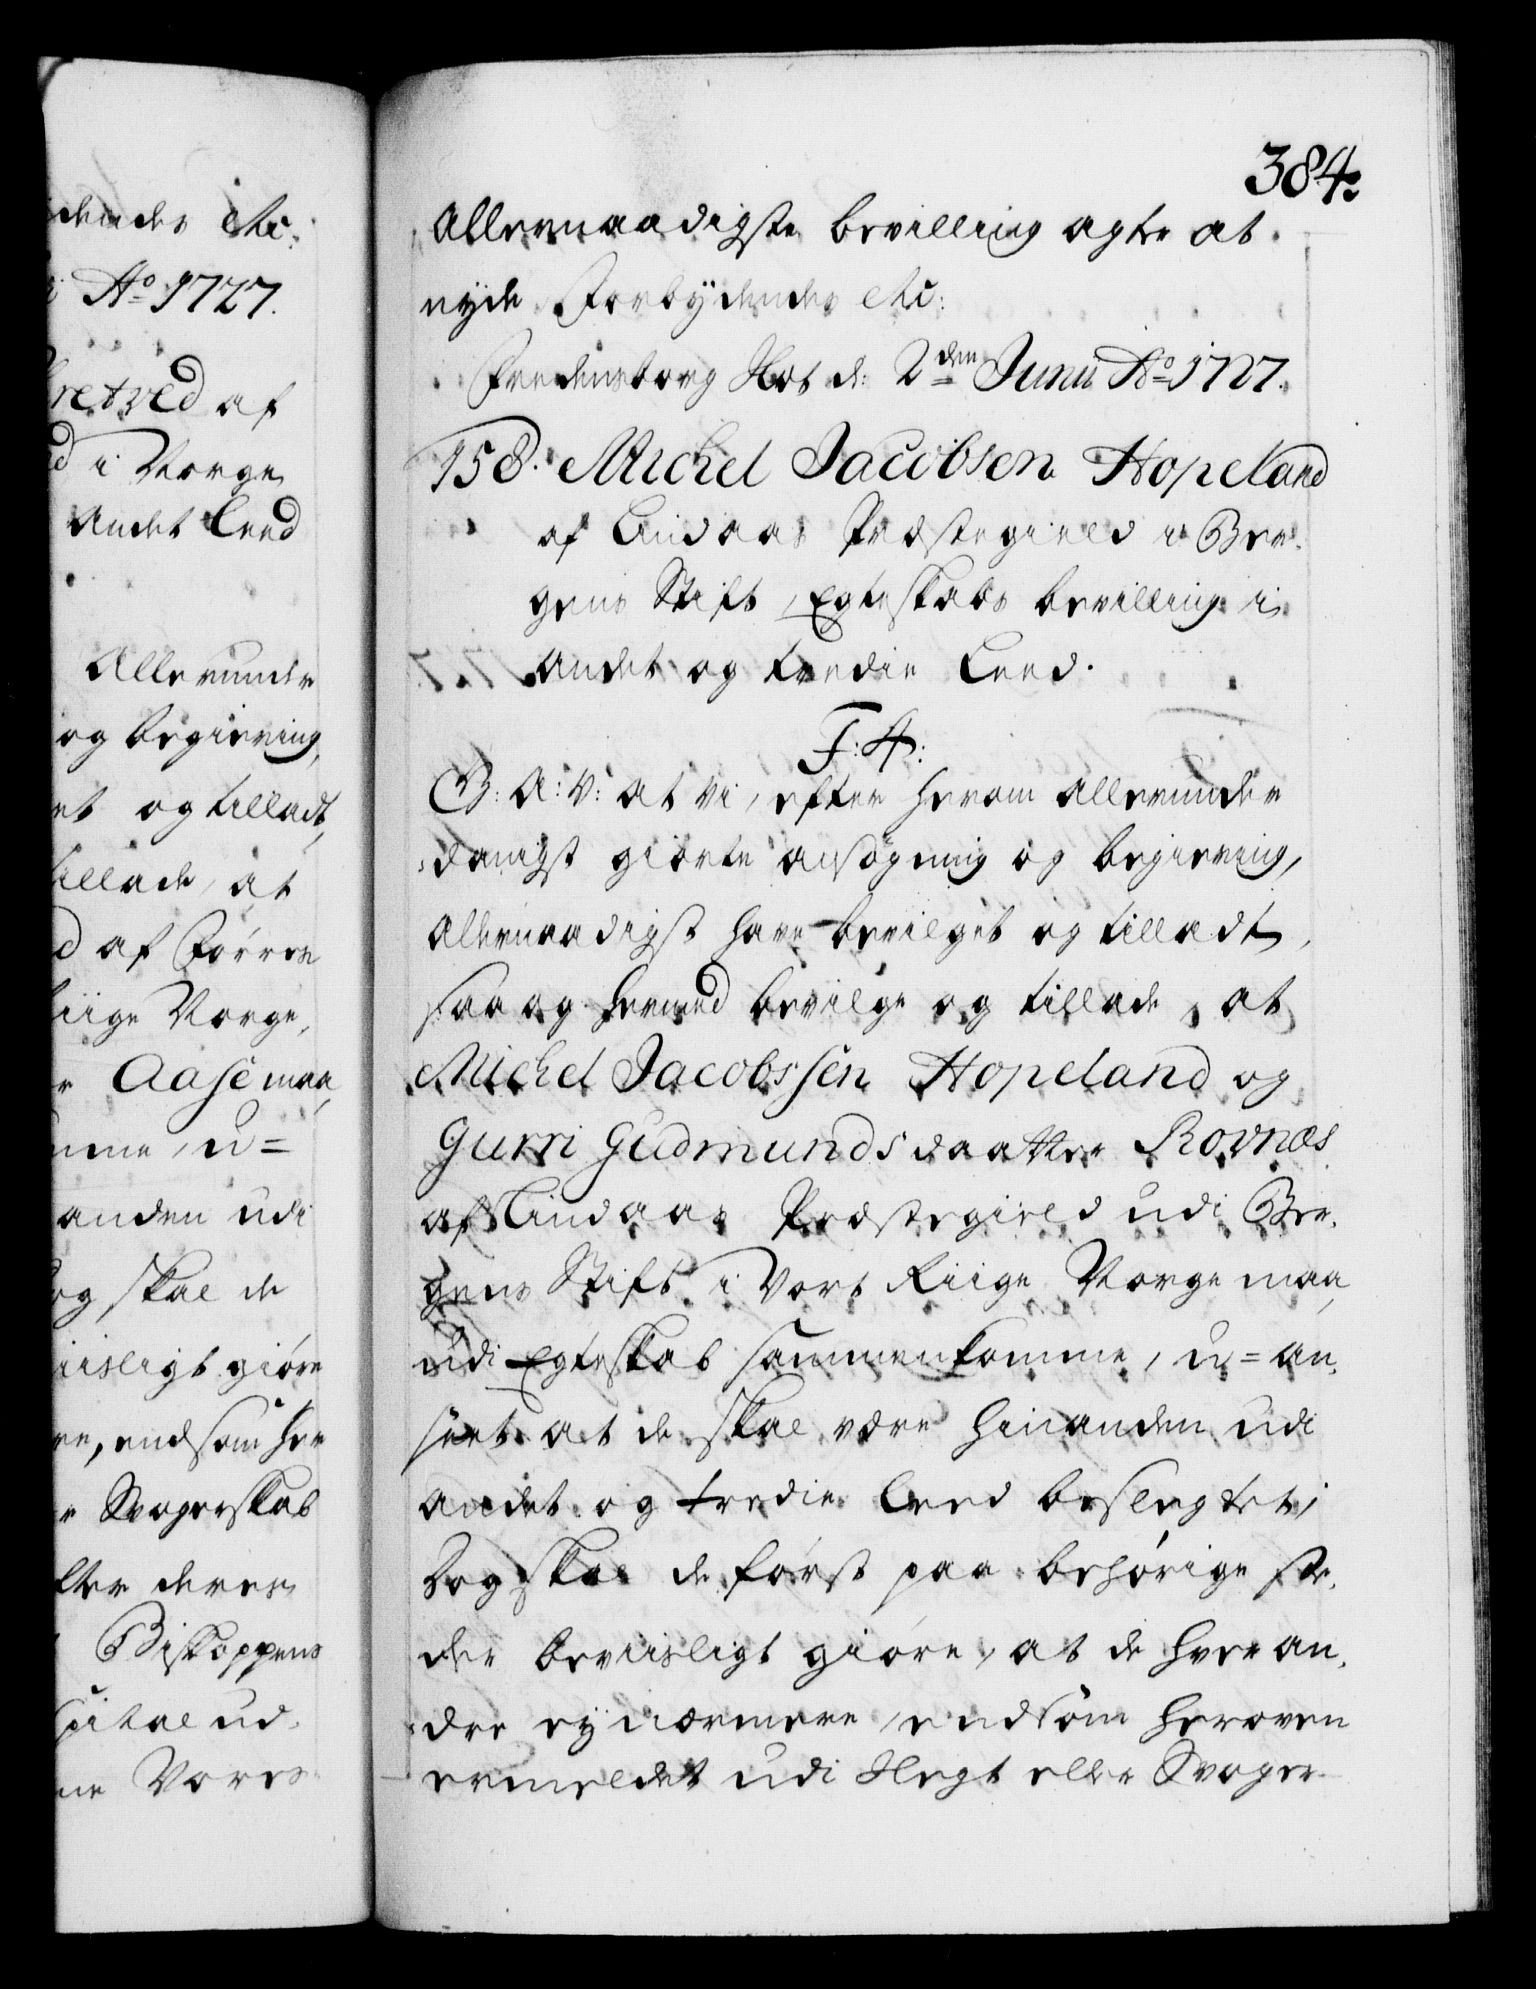 dendes etc:
i Aº 1727.
retved af
d i Norge
andet Leed
Allerunder
og begiering,
et og tilladt,
tillade, at
d af Förres
Riige Norge,
r Aase maa,
mme, u=
anden udi
og skal de
viisligt giöre
re, end som her
r Svogerskab
fter deres
Biskoppens
spital ud.
ne Vores
384.
Allernaadigste bevilling agter at
nyde Forbydendes etc:
Fredensborg Slot d: 2den Junii Aº 1727.
158. Michel Jacobsen Hopeland
af Lindaas Præstegield i Ber.
gens Stift, Egteskabs bevilling i
andet og tredie Leed.
F:4:
G: A: V: at vi, efter herom allerunder
danigst giorte ansögning og begiering,
allernaadigst have bevilget og tilladt,
saa og hermed bevilge og tillade, at
Michel Jacobssen Hopeland og
Gurri Gudmunds daatter Rovnæs
af Lindaas Præstegield udi Ber.
gens Stift i Vort Riige Norge maa,
udi Egteskab sammenkomme, u=an.
seet at de skal være hinanden udi
andet og tredie Leed beslegtet;
Dog skal de först paa behörige ste.
der beviisligt giöre, at de hveran.
dre ey nærmere, end som heroven
ermeldet udi Slegt eller Svoger-